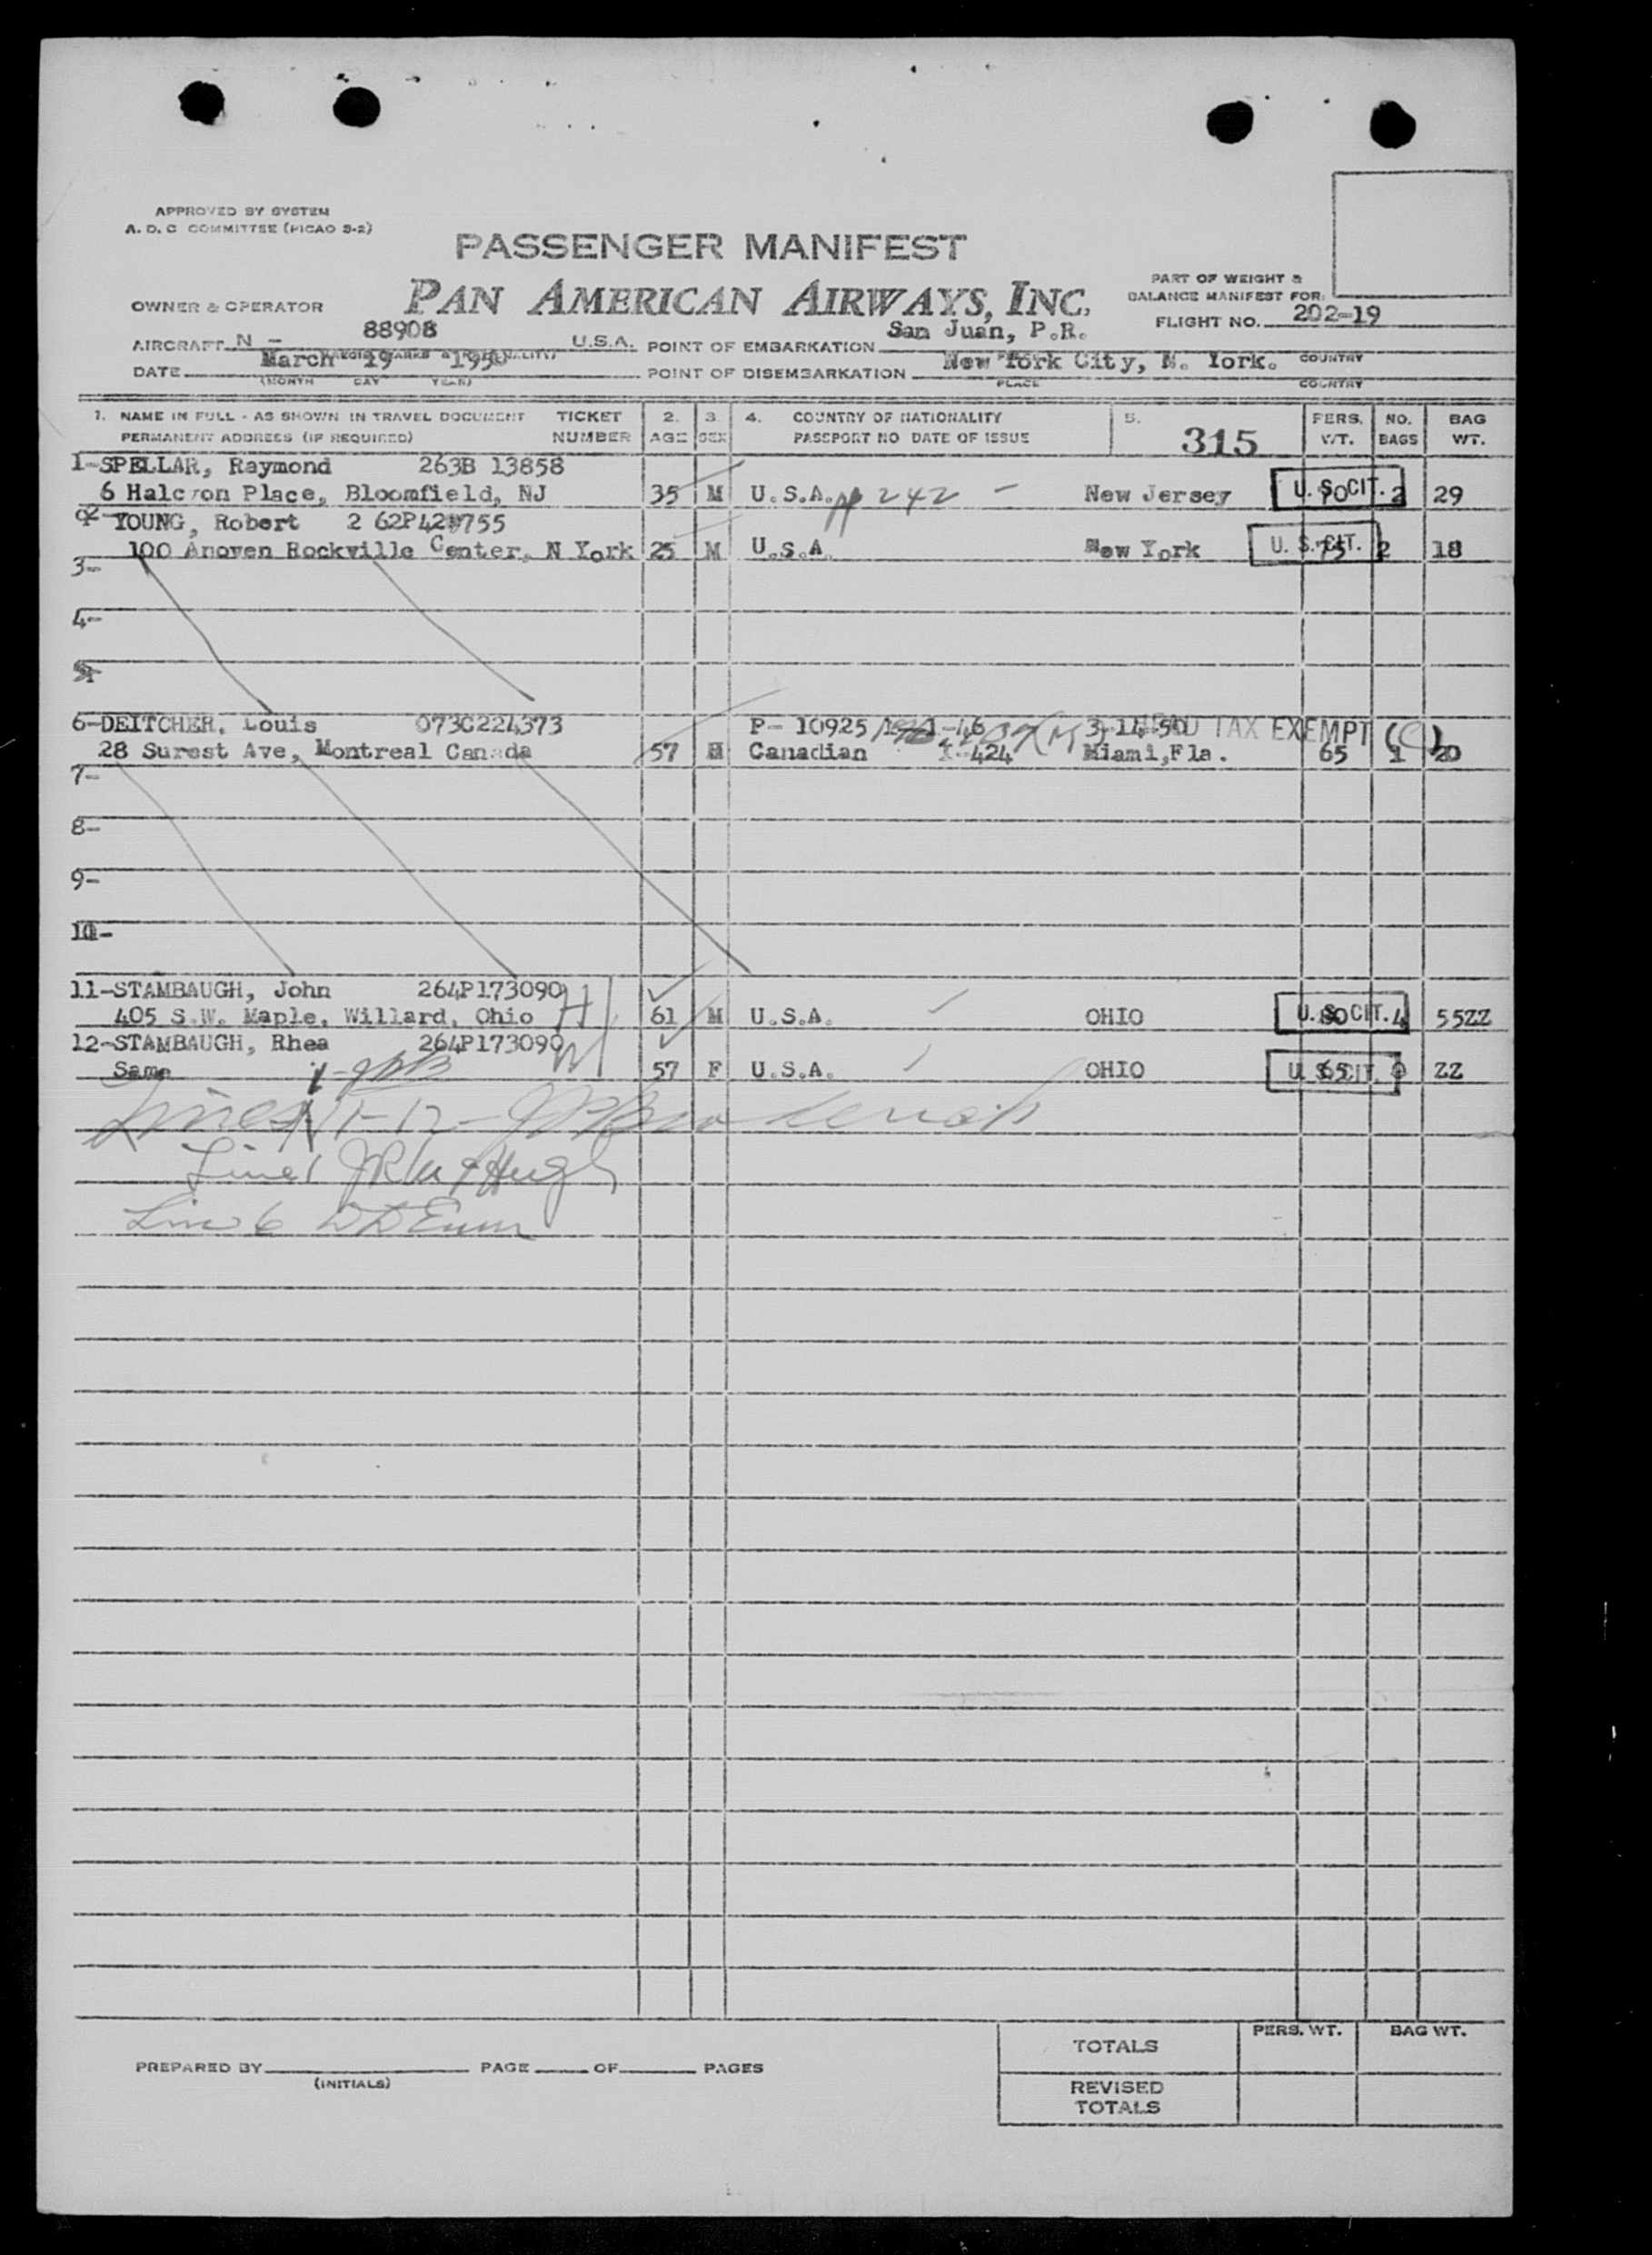 APPROVED BY SYSTEM
A. D. C COMMITTEE (PICAO S-2)
PASSENGER MANIFEST
OWNER & OPERATOR PAN AMERICAN AIRWAYS, INC.
PART OF WEIGHT &
BALANCE MANIFEST FOR:
FLIGHT NO. 202-19
AIRCRAFT N - 88908 U.S.A. POINT OF EMBARKATION San Juan, P.R.
DATE March 19 1950 POINT OF DISEMBARKATION New York City, N. York.
(MONTH DAY YEAR) PLACE COUNTRY
1. NAME IN FULL - AS SHOWN IN TRAVEL DOCUMENT TICKET 2. 3. 4. COUNTRY OF NATIONALITY 5. PERS. NO. BAG
PERMANENT ADDRESS (IF REQUIRED) NUMBER AGE SEX PASSPORT NO DATE OF ISSUE 315 WT. BAGS WT.
1-SPELLAR, Raymond 263B 13858
6 Halcyon Place, Bloomfield, NJ 35 M U.S.A. 242 - New Jersey U. S. CIT. 70 2 29
YOUNG, Robert
100 Anoven Rockville Center, N York 25 M U.S.A. New York U. S. CIT. 75 2 18
3-
4-
6-DEITCHER, Louis 073C224373 P- 10925 3-14-50 HEAD TAX EXEMPT
28 Surest Ave, Montreal Canada 57 M Canadian 424 Miami,Fla. 65 1 20
7-
8-
9-
10-
11-STAMBAUGH, John 264P173090
405 S.W. Maple, Willard, Ohio H 61 M U.S.A. OHIO U. S. CIT. 80 4 55ZZ
12-STAMBAUGH, Rhea 264P173090
Same W 57 F U.S.A. OHIO U. S. CIT. 65 ZZ
Lines 11-12-
Line 1
Line 6
TOTALS PERS. WT. BAG WT.
PREPARED BY PAGE OF PAGES
(INITIALS)
REVISED
TOTALS